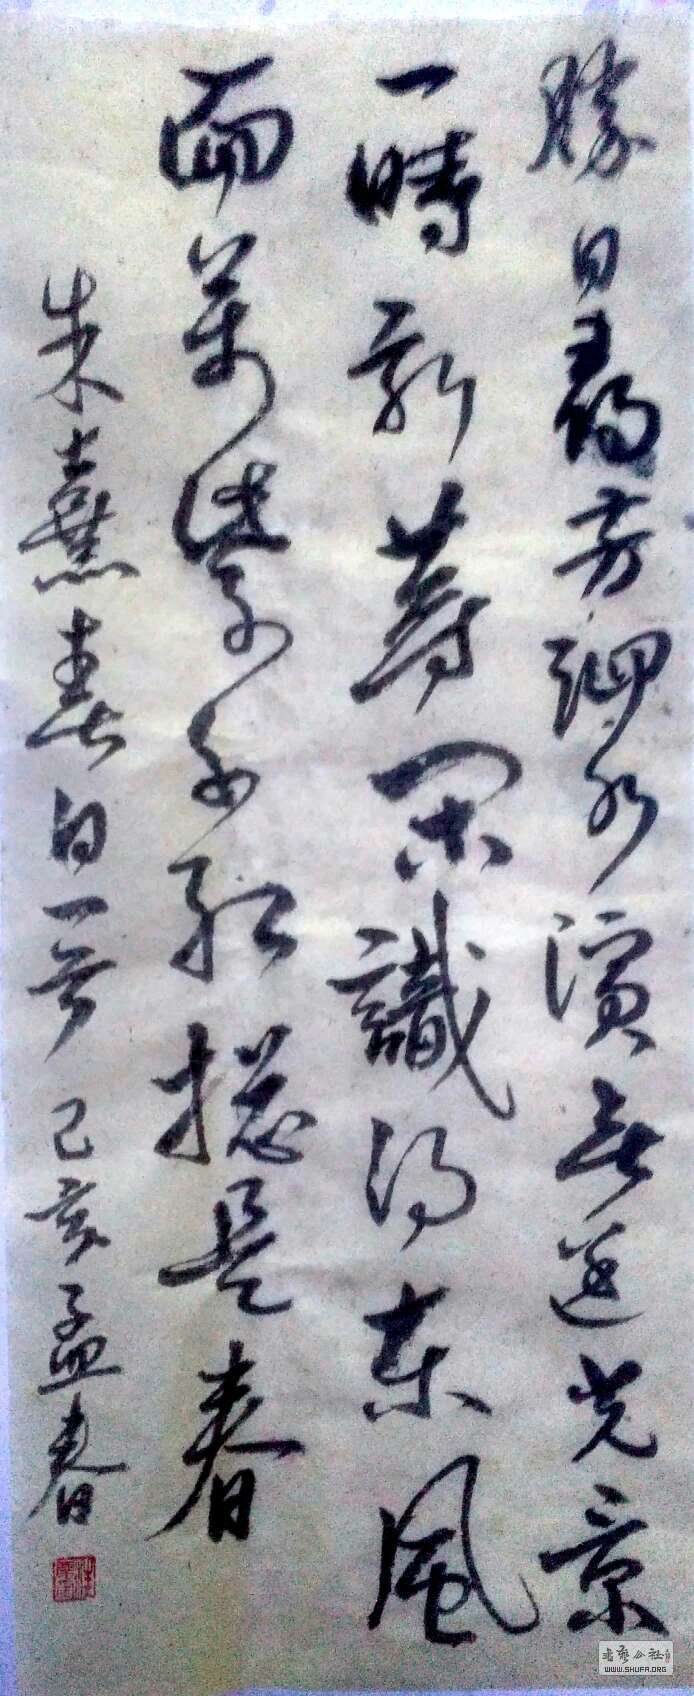 勝日尋芳泗水濱無邊光景
一時新等閑識得東風
面萬紫千紅捴是春
朱熹春日一首 己亥孟春
书艺公社
WWW.SHUFA.ORG